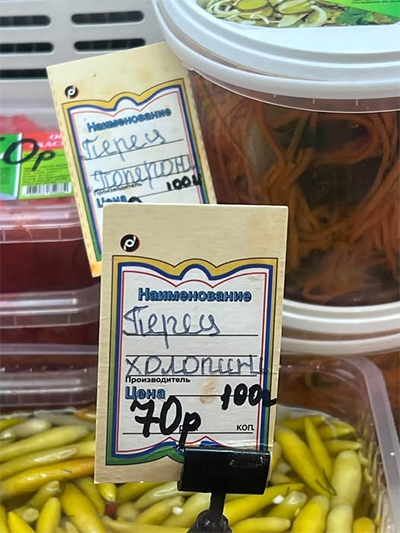 Наименование
Перец
Попероні
Производитель
100г
Цена
0р
Наименование
Перец
холопині
Производитель
Цена
100г
70р
коп.